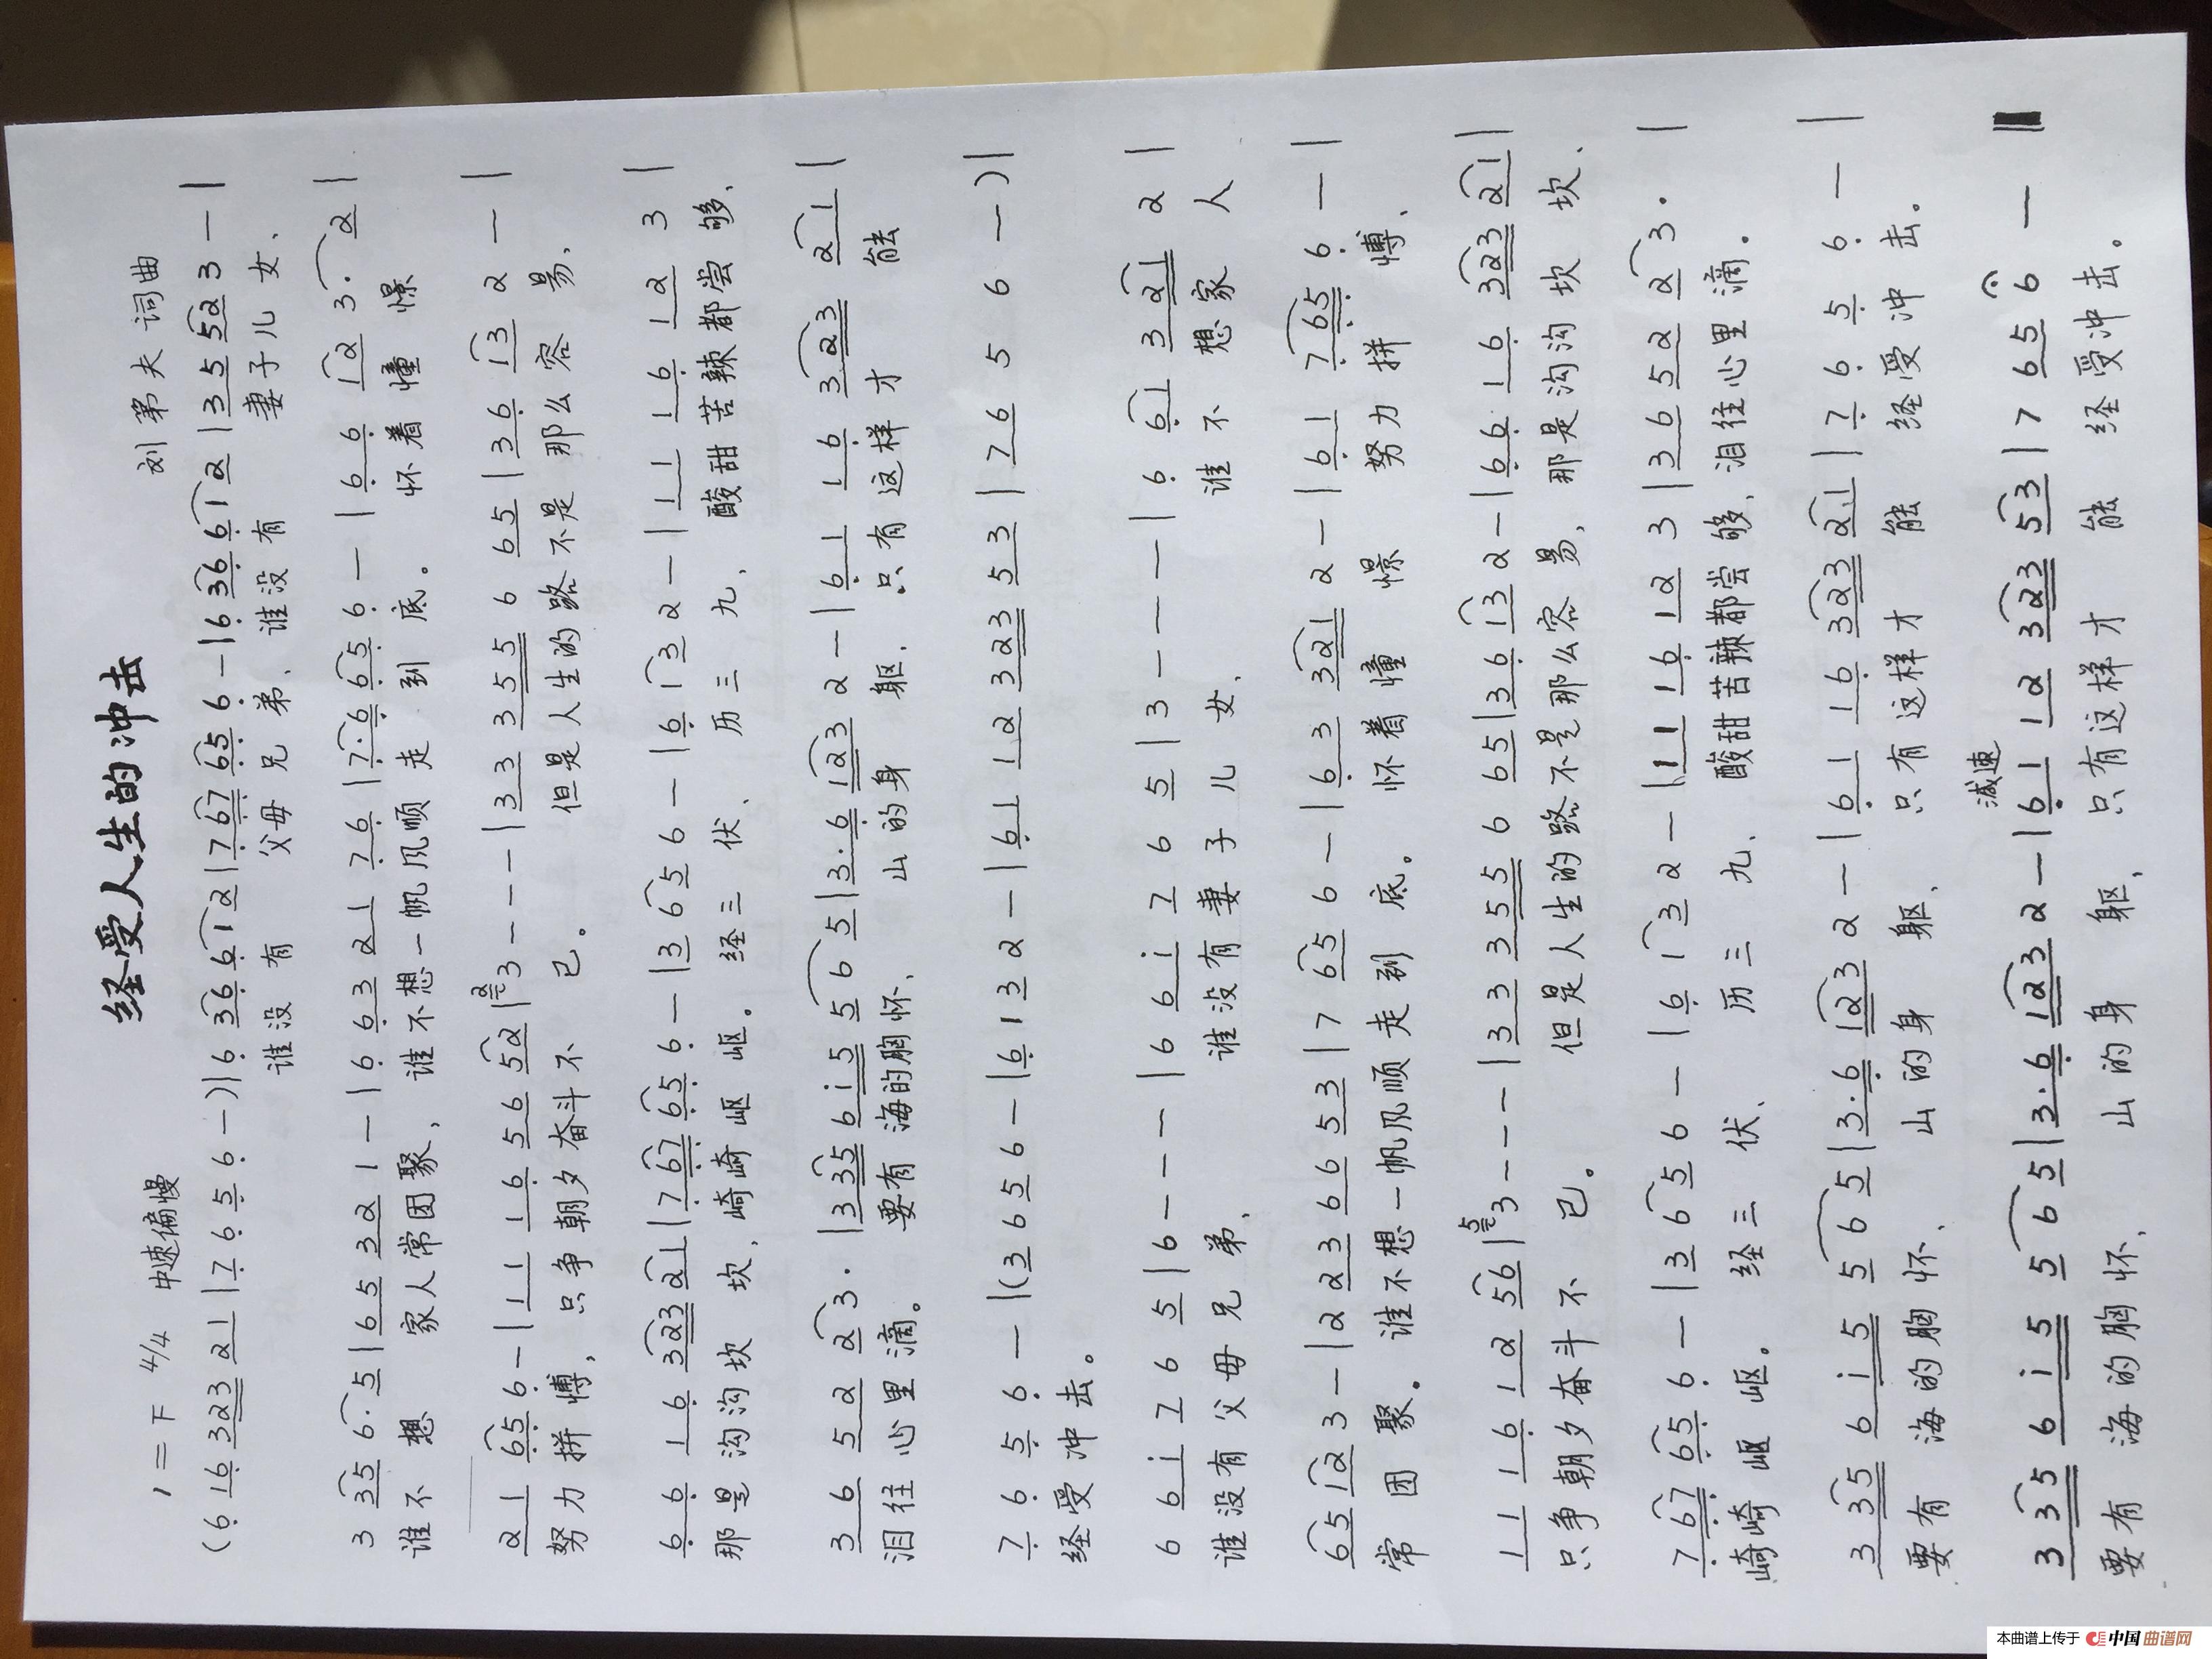 经受人生的冲击
1=F 4/4 中速偏慢 刘第夫 词曲
(6 16 323 21 | 7 6 5 6 —) | 6 36 6 12 | 7 67 65 6 — | 6 36 6 12 | 35 52 3 — |
谁没有 父母兄弟、谁没有 妻子儿女、
3 35 6· 5 | 65 32 1 — | 6 63 21 76 | 7·6 65 6 — | 6 6 12 3· 2 |
谁不想 家人常团聚，谁不想一帆风顺走到底。怀着憧憬
21 65 6 — | 11 16 56 52 | 3 — — — | 33 355 6 65 | 36 13 2 — |
努力拼愽，只争朝夕奋斗不已。但是人生的路不是那么容易，
66 16 323 21 | 7 67 65 6 — | 36 5 6 — | 6 1 3 2 — | 11 16 12 3 |
那是沟沟坎坎，崎崎岖岖。经三伏、历三九，酸甜苦辣都尝够，
36 52 2 3· | 3 35 6 i5 5 6 5 | 3·6 123 2 — | 61 16 323 21 |
泪往心里滴。要有海的胸怀、山的身躯，只有这样才能
7 6 5 6 — | (36 5 6 — | 61 3 2 — | 61 12 323 53 | 76 5 6 —) |
经受冲击。
6 6i 7 6 5 | 6 — — — | 6 6i 7 6 5 | 3 — — — | 6 61 3 21 2 |
谁没有父母兄弟、谁没有妻子儿女、谁不想家人
65 12 3 — | 2 23 66 53 | 7 65 6 — | 63 321 2 — | 61 7 65 6 — |
常团聚。谁不想一帆风顺走到底。怀着憧憬努力拼愽、
11 16 12 56 | 3 — — — | 33 355 6 65 | 36 13 2 — | 66 16 323 21 |
只争朝夕奋斗不已。但是人生的路不是那么容易，那是沟沟坎坎、
7 67 65 6 — | 36 5 6 — | 6 1 3 2 — | 11 16 12 3 | 36 52 2 3· |
崎崎岖岖。经三伏、历三九、酸甜苦辣都尝够，泪往心里滴。
3 35 6 i5 5 6 5 | 3·6 123 2 — | 61 16 323 21 | 7 6 5 6 — |
要有海的胸怀、山的身躯、只有这样才能经受冲击。
减速
3 35 6 i5 5 6 5 | 3·6 123 2 — | 61 12 323 53 | 7 65 6 —
要有海的胸怀、山的身躯，只有这样才能经受冲击。
本曲谱上传于 中国曲谱网